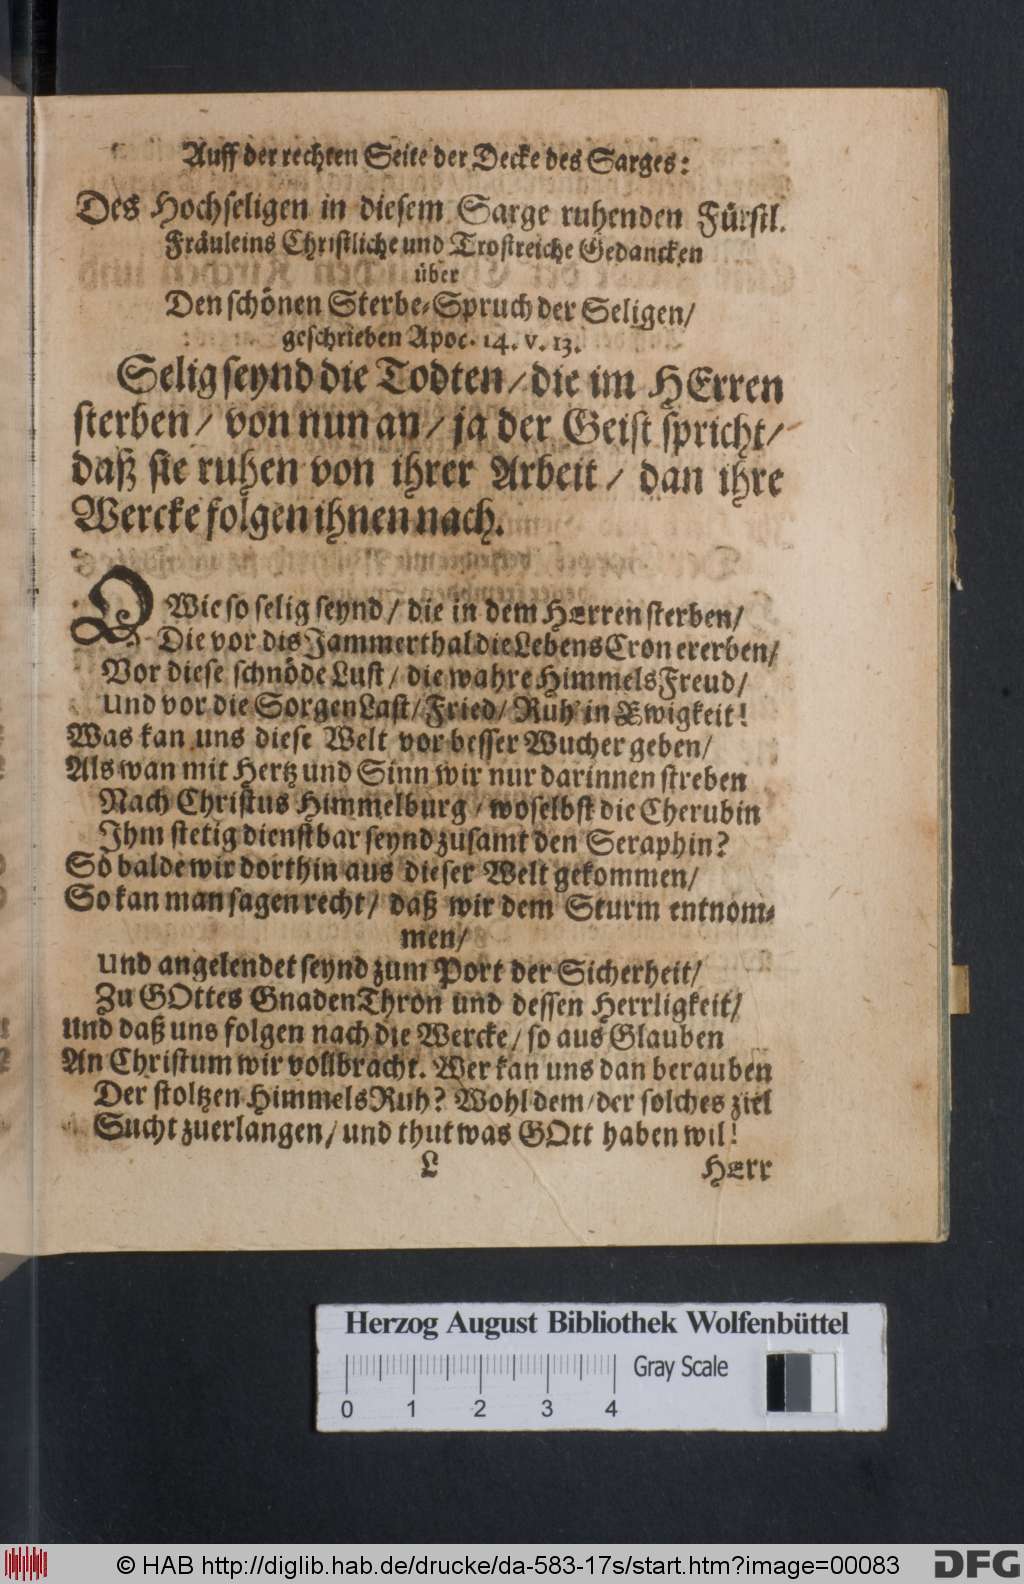 Auff der rechten Seite der Decke des Sarges:
Des Hochseligen in diesem Sarge ruhenden Fürstl.
Fräuleins Christliche und Trostreiche Gedancken
über
Den schönen Sterbe-Spruch der Seligen/
geschrieben Apoc. 14. v. 13.
Selig seynd die Todten/ die im HErren
sterben/ von nun an/ ja der Geist spricht/
daß sie ruhen von ihrer Arbeit/ dan ihre
Wercke folgen ihnen nach.
O Wie so selig seynd/ die in dem HErren sterben/
Die vor dis Jammerthal die LebensCron ererben/
Vor diese schnöde Lust/ die wahre HimmelsFreud/
Und vor die SorgenLast/ Fried/ Ruh' in Ewigkeit!
Was kan uns diese Welt vor besser Wucher geben/
Als wan mit Hertz und Sinn wir nur darinnen streben
Nach Christus Himmelburg/ woselbst die Cherubin
Ihm stetig dienstbar seynd zusamt den Seraphin?
So balde wir dorthin aus dieser Welt gekommen/
So kan man sagen recht/ daß wir dem Sturm entnom-
men/
Und angelendet seynd zum Port der Sicherheit/
Zu GOttes GnadenThron und dessen Herrligkeit/
Und daß uns folgen nach die Wercke/ so aus Glauben
An Christum wir vollbracht. Wer kan uns dan berauben
Der stoltzen HimmelsRuh? Wohl dem/ der solches ziel
Sucht zuerlangen/ und thut was GOtt haben wil!
L HErr
Herzog August Bibliothek Wolfenbüttel
Gray Scale
0 1 2 3 4
© HAB http://diglib.hab.de/drucke/da-583-17s/start.htm?image=00083
DFG